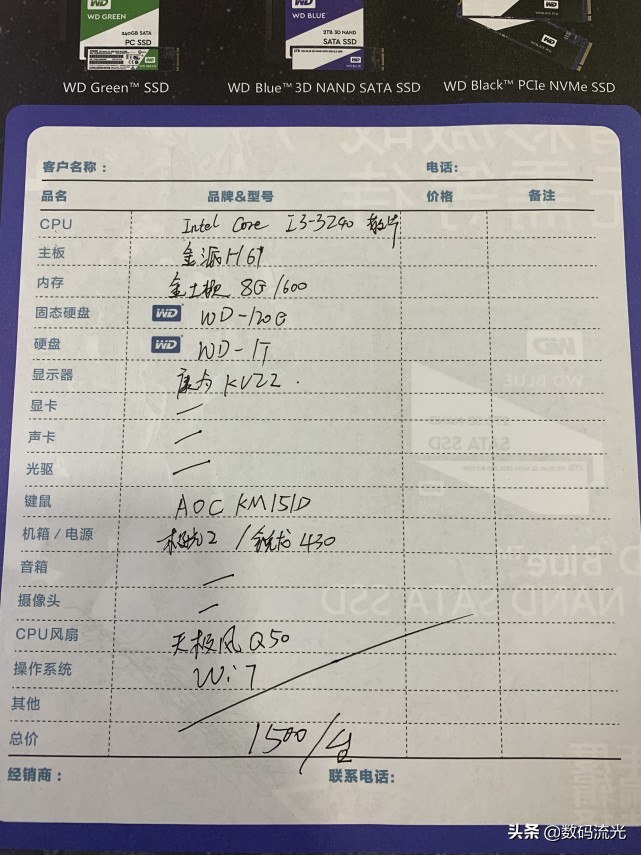 WD
WD GREEN
240GB SATA
PC SSD
WD GREEN
WD
WD BLUE
2TB 3D NAND
SATA SSD
WD BLUE
WD
WD Green™ SSD
WD Blue™ 3D NAND SATA SSD
WD Black™ PCIe NVMe SSD
客户名称： 电话：
品名 品牌&型号 价格 备注
CPU Intel Core I3-3240 散片
主板 金派H61
内存 金士顿 8G 1600
固态硬盘 WD WD-120G
硬盘 WD WD-1T
显示器 KV22
显卡 —
声卡 —
光驱 —
键鼠 AOC KM151D
机箱 / 电源 2 / 430
音箱 —
摄像头 —
CPU风扇 天极风Q50
操作系统 Wi7
其他
总价 1500/台
经销商： 联系电话：
头条 @数码流光